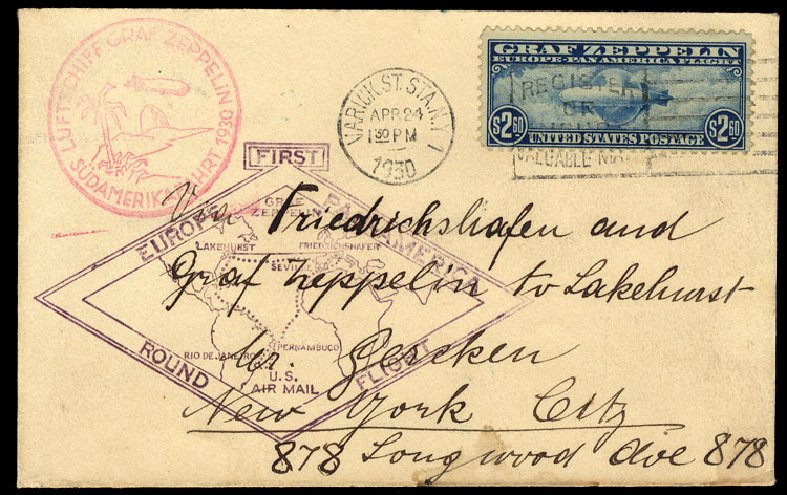 LUFTSCHIFF GRAF ZEPPELIN
SÜDAMERIKAFAHRT 1930
VARICK ST. STA. N.Y. 1
APR 24
1 30 PM
1930
GRAF ZEPPELIN
EUROPE-PAN AMERICA FLIGHT
$2.60 $2.60
UNITED STATES POSTAGE
REGISTER
OR
VALUABLE MAIL
FIRST
EUROPE PAN-AMERICA
ROUND FLIGHT
GRAF
ZEPPELIN
LAKEHURST FRIEDRICHSHAFEN
SEVILLE
RIO DE JANEIRO PERNAMBUCO
U.S.
AIR MAIL
Via Friedrichshafen and
Graf Zeppelin to Lakehurst
Gercken
New York City
878 Longwood Ave 878